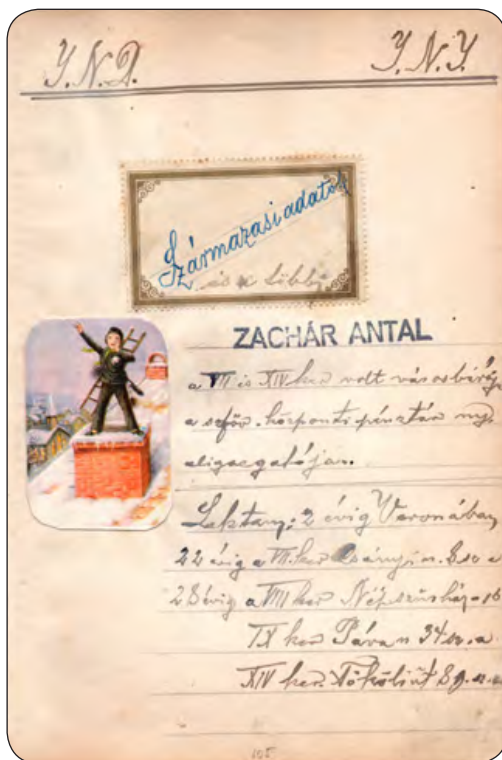 J.N.D. J.N.J.
Származasi adatok
és a többi
ZACHÁR ANTAL
a VII és XIV ker volt városbírój
a központi pénztár ny.
aligazgatója.
2 évig Veronában
22 évig a VII. ker Csányi u. 8 sz a
28 évig a VIII ker Népszinház u 16
IX ker Páva u 34 sz. a.
XIV ker. Thököli út 89. sz. a
105